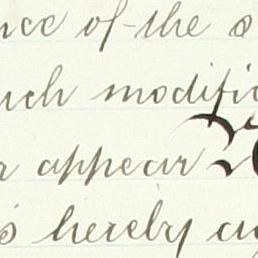 nce of the s
uch modific
r appear
s hereby au